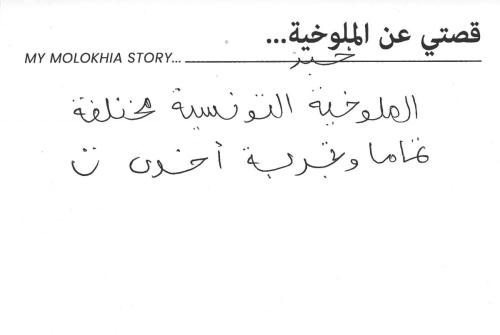 قصتي عن الملوخية...
MY MOLOKHIA STORY...
الملوخية التونسية مختلفة
تماما وتجربة أخرى